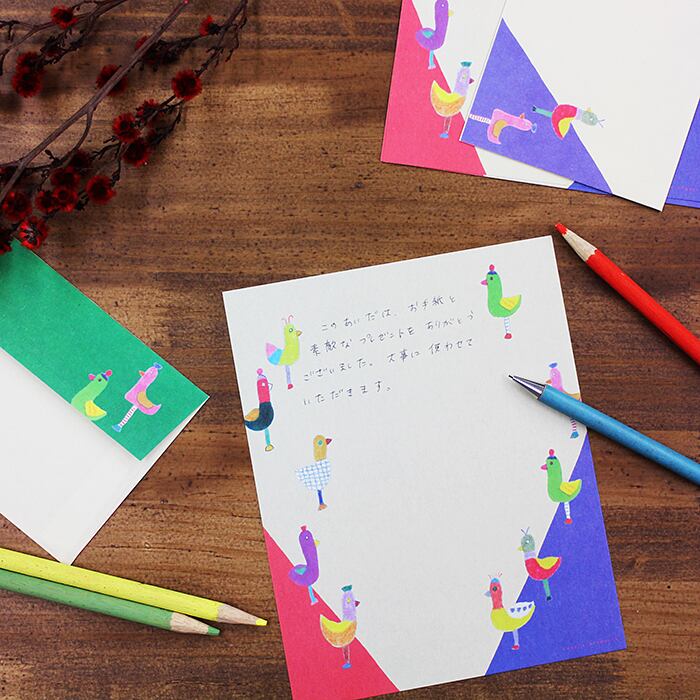 このあいだは、お手紙と
素敵なプレゼントをありがとう
ございました。大事に使わせて
いただきます。